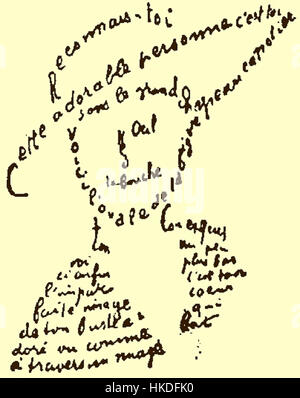 Reconnais-toi
Cette adorable personne c'est toi
sous le grand chapeau canotier
Oeil
la bouche
Voici l'ovale de ta figure
ton
Cou exquis
voi
ci enfin
l'impar
faite image
de ton buste a
doré vu comme
à travers un nuage
un peu
plus bas
c'est ton
coeur
qui
bat
HKDFK0